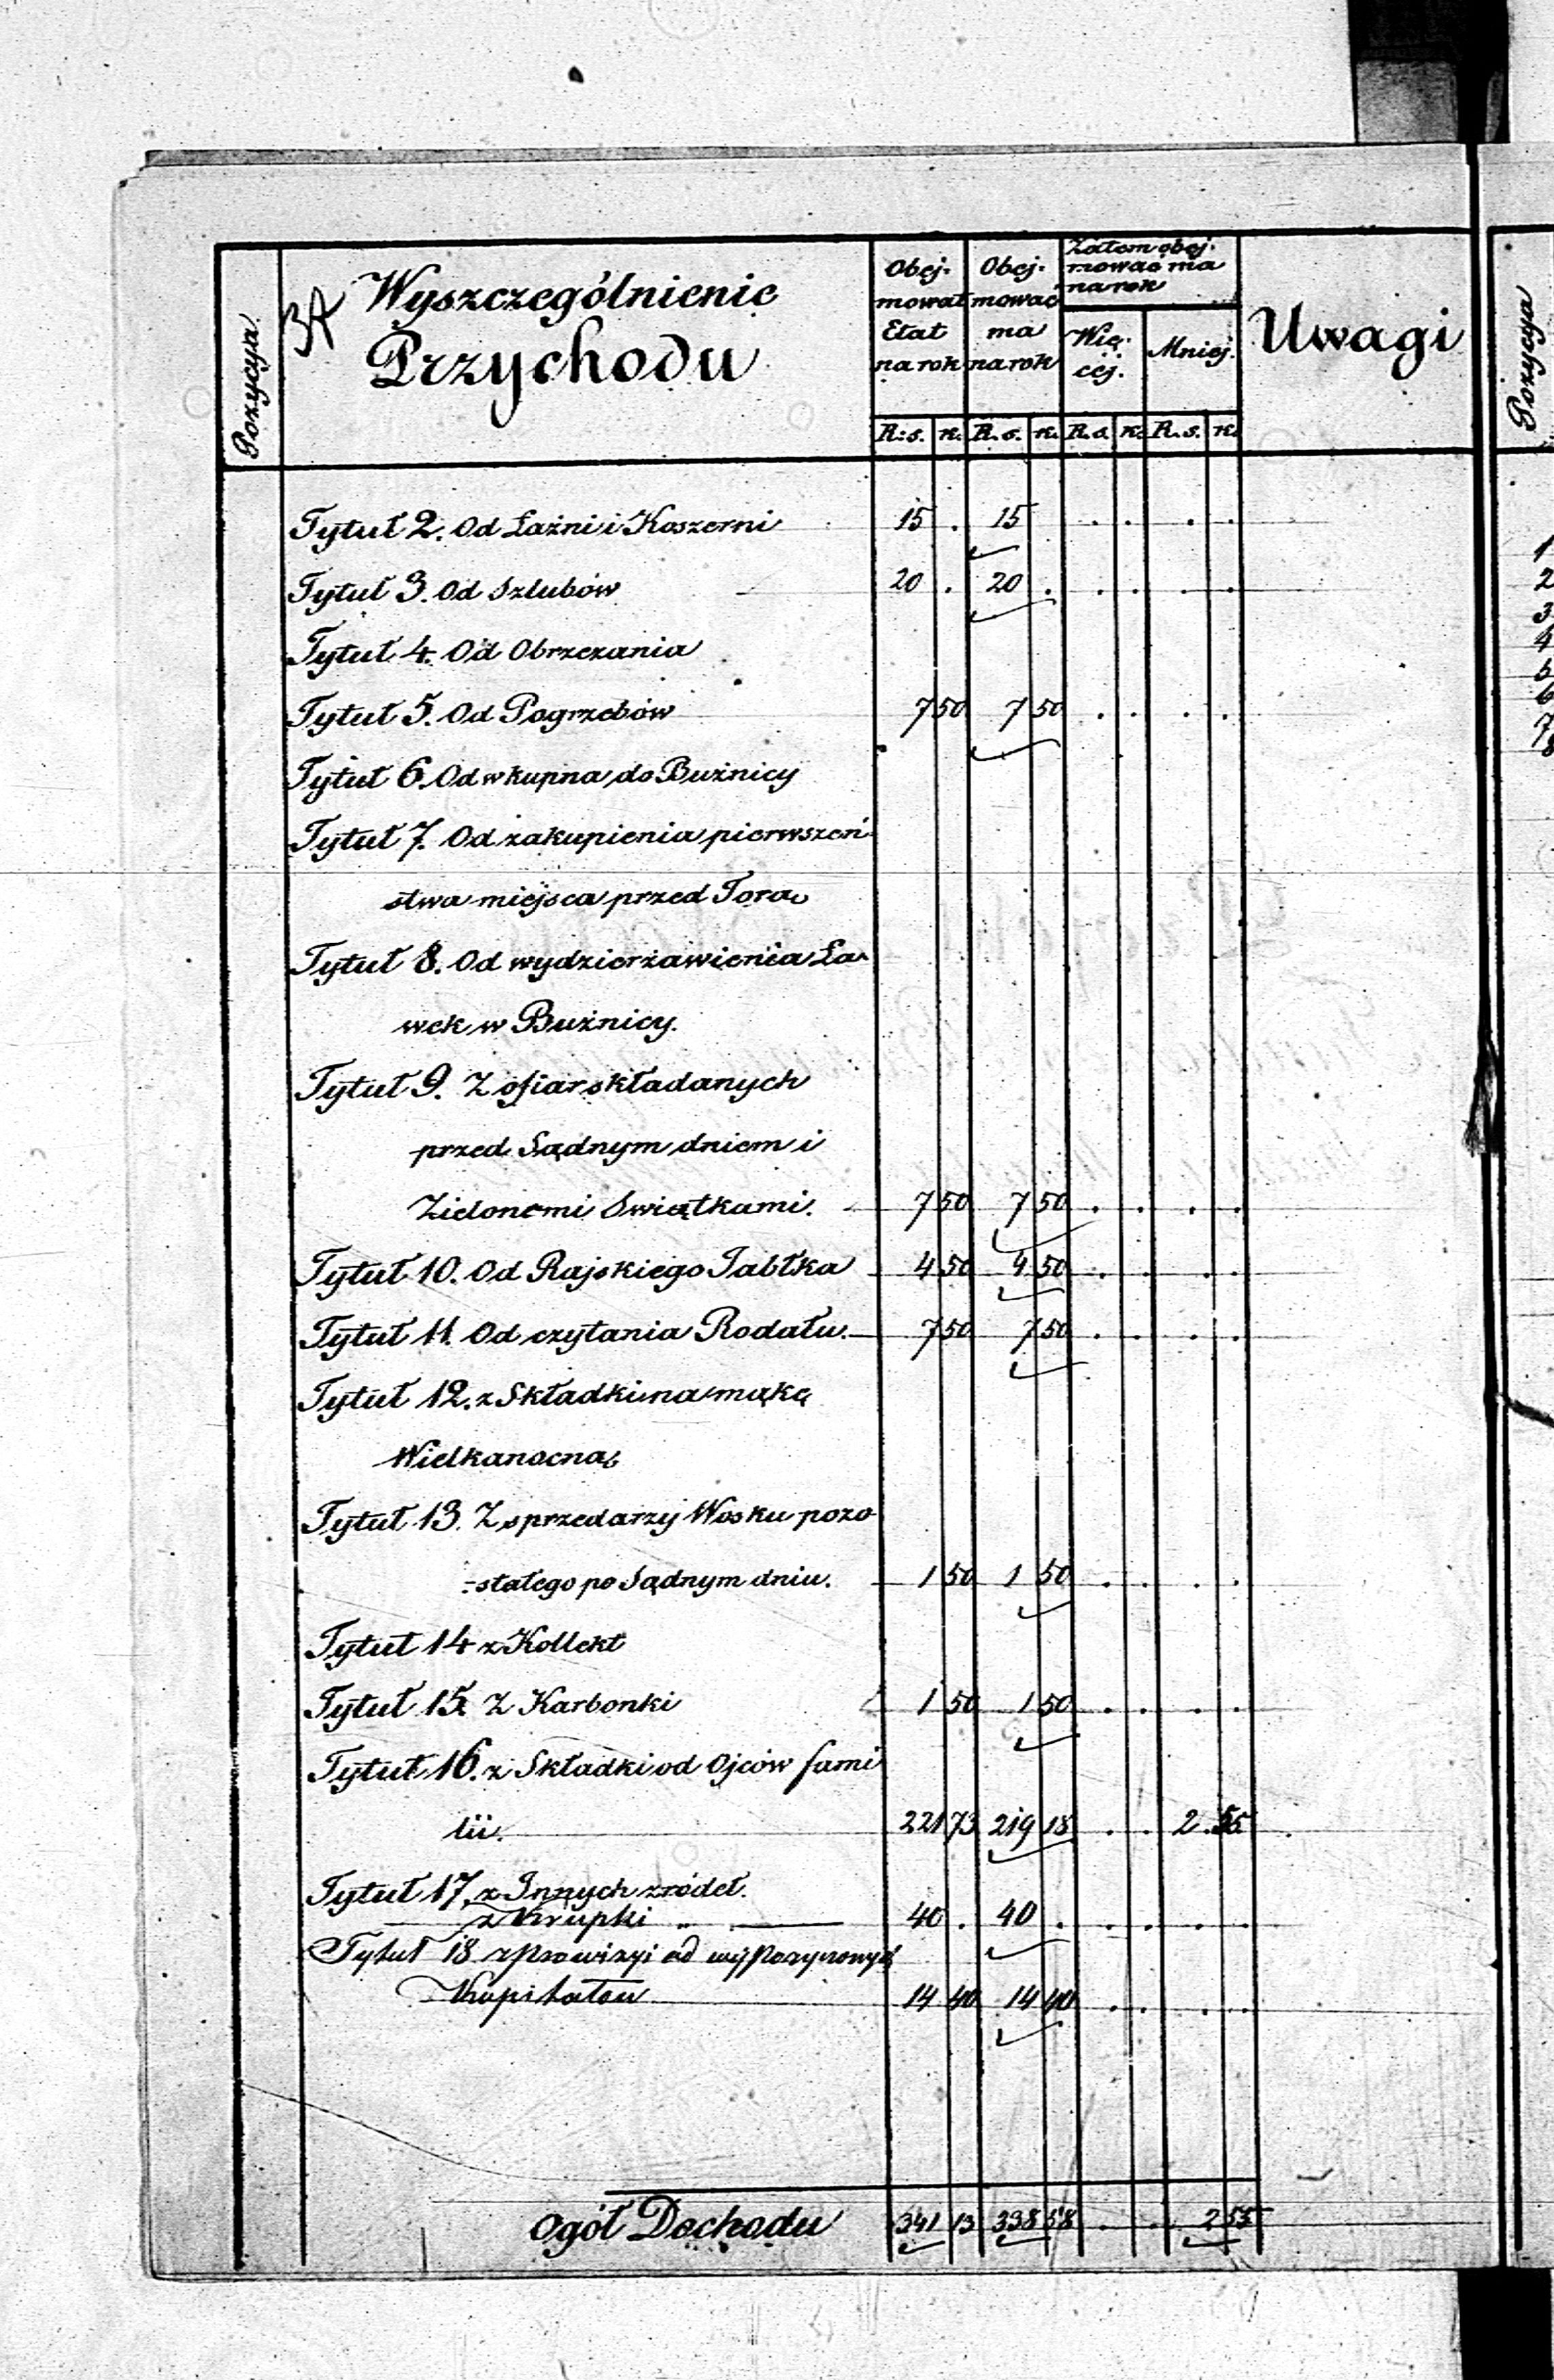 34
Pozycya
Wyszczególnienie
Przychodu
Obej-
mował
Etat
na rok
Obej-
mować
ma
na rok
Zatem obej-
mować ma
na rok
Wię-
cej.
Mniej.
Uwagi
Pozycya
R: s. k. R. s. k. R. s. k. R. s. k.
Tytuł 2. Od Łaźni i Koszerni 15 . 15 . . . .
Tytuł 3. Od Szlubów 20 . 20 . . . . .
Tytuł 4. Od Obrzezania
Tytuł 5. Od Pogrzebów 7 50 7 50 . . . .
Tytuł 6. Od wkupna do Bużnicy
Tytuł 7. Od zakupienia pierwszeń-
stwa miejsca przed Torą
Tytuł 8. Od wydzierżawienia Ła-
wek w Bużnicy.
Tytuł 9. Z ofiar składanych
przed Sądnym dniem i
Zielonemi Swiątkami. 7 50 7 50 . . . .
Tytuł 10. Od Rajskiego Jabłka 4 50 4 50 . . . .
Tytuł 11. Od czytania Rodału. 7 50 7 50 . . . .
Tytuł 12. z Składki na mąkę
Wielkanocną
Tytuł 13. Z sprzedarzy Wosku pozo-
-stałego po Sądnym dniu. 1 50 1 50 . . . .
Tytuł 14 z Kollekt
Tytuł 15. Z Karbonki 1 50 1 50 . . . .
Tytuł 16. z Składki od Ojców fami-
lii. 221 73 219 18 . . 2 . 55
Tytuł 17. z Innych zródeł.
z Krupki " 40 . 40 . . . . .
Tytuł 18 z prowizyi od wypozyczonych
Kapitałow 14 40 14 40 . . . .
Ogół Dochodu 341 13 338 58 . . 2 55
1
2
3
4
5
6
7
8